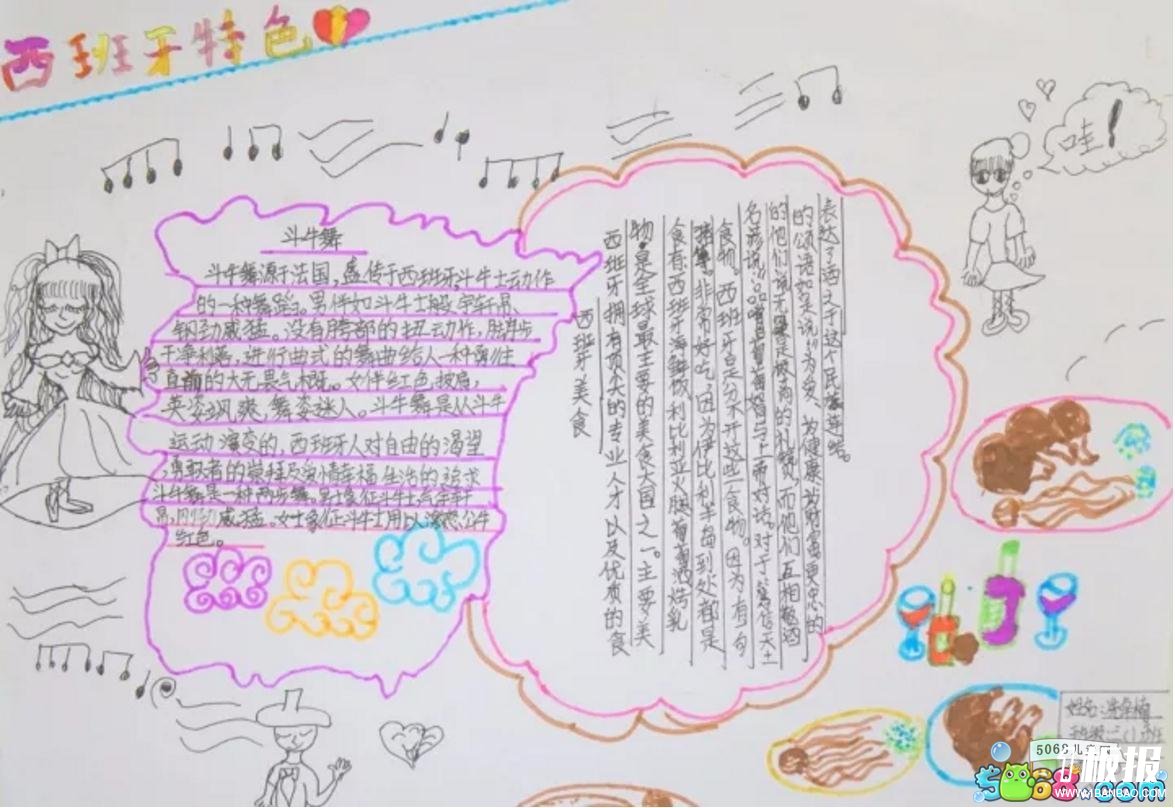 西班牙特色
哇！
斗牛舞
斗牛舞源于法国，盛传于西班牙，斗牛士动作
的一种舞蹈。男伴如斗牛士般气宇轩昂、
钢劲威猛。没有胯部的扭动动作，脚步
干净利落，进行曲式的舞曲给人一种勇往
直前的大无畏气概。女伴红色披肩，
英姿飒爽，舞姿迷人。斗牛舞是从斗牛
运动演变的，西班牙人对自由的渴望
勇敢者的崇拜及爱情幸福生活的追求
斗牛舞是一种两步舞。男士象征斗牛士气宇轩
昂，刚劲威猛。女士象征斗牛士用以激怒公牛
红色。
西班牙美食
西班牙拥有顶尖的专业人才以及优质的食
物，是全球最主要的美食大国之一。主要美
食有西班牙海鲜饭 伊比利亚火腿 葡萄酒 烤乳
猪等。非常好吃，因为伊比利半岛到处都是
食物。西班牙是分不开这些食物。因为有句
名形说
的他们说无
的颂语如果说“为爱、为健康、为财富更忠的
表达了酒之于这个民族
姓名:
班级:三(1)班
5068儿童网
5068.com
板报
WWW.1BANBAO.COM